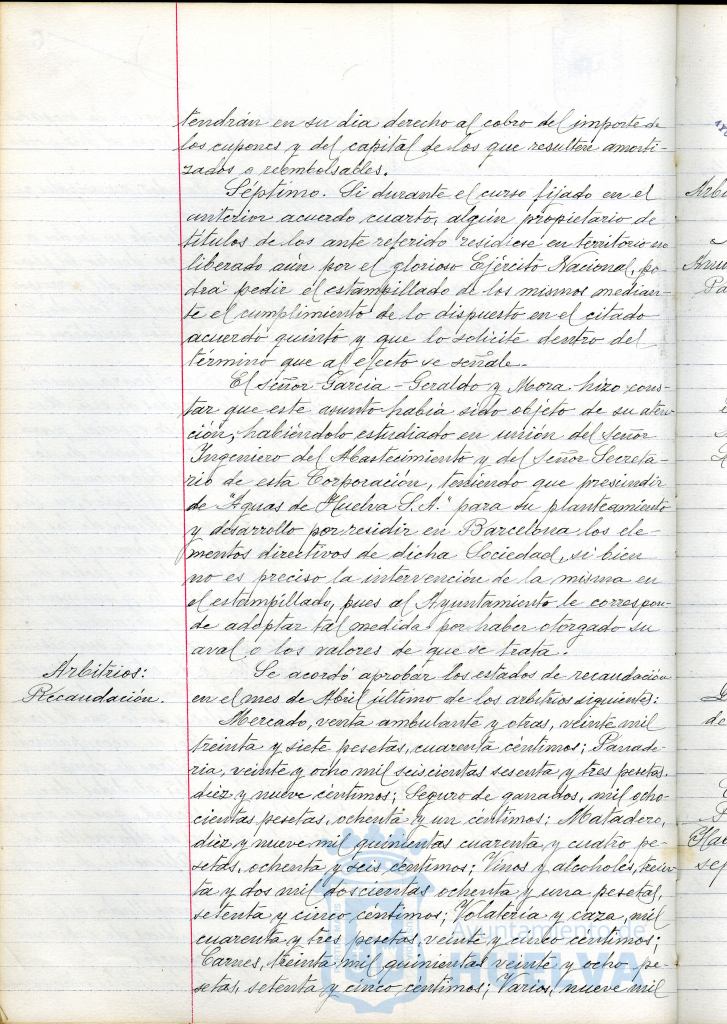 tendrán en su dia derecho al cobro del importe de
los cupones y del capital de los que resulten amorti-
zados o reembolsables.
Séptimo. Si durante el curso fijado en el
anterior acuerdo cuarto, algún propietario de
títulos de los ante referido residiese en territorio no
liberado aún por el glorioso Ejército Nacional, po-
drá pedir el estampillado de los mismos median-
te el cumplimiento de lo dispuesto en el citado
acuerdo quinto y que lo solicite dentro del
término que al efecto se señale.
El señor Garcia-Geraldo y Mora hizo cons-
tar que este asunto habia sido objeto de su aten-
ción, habiéndolo estudiado en unión del señor
Ingeniero del Abastecimiento y del señor Secreta-
rio de esta Corporación, teniendo que prescindir
de "Aguas de Huelva S.A." para su planteamiento
y desarrollo por residir en Barcelona los ele-
mentos directivos de dicha Sociedad, si bien
no es preciso la intervención de la misma en
el estampillado, pues al Ayuntamiento le correspon-
de adoptar tal medida por haber otorgado su
aval o los valores de que se trata.
Arbitrios:
Recaudación.
Se acordó aprobar los estados de recaudación
en el mes de Abril último de los arbitrios siguientes:
Mercado, venta ambulante y otras, veinte mil
treinta y siete pesetas, cuarenta céntimos; Panade-
ria, veinte y ocho mil seiscientas sesenta y tres pesetas,
diez y nueve céntimos; Seguro de ganados, mil ocho-
cientas pesetas, ochenta y un céntimos; Matadero,
diez y nueve mil quinientas cuarenta y cuatro pe-
setas, ochenta y seis céntimos; Vinos y alcoholes, trein-
ta y dos mil doscientas ochenta y una pesetas,
setenta y cinco céntimos; Volateria y caza, mil
cuarenta y tres pesetas, veinte y cinco céntimos;
Carnes, treinta mil quinientas veinte y ocho pe-
setas, setenta y cinco céntimos; Varios, nueve mil
Ayuntamiento de
HUELVA